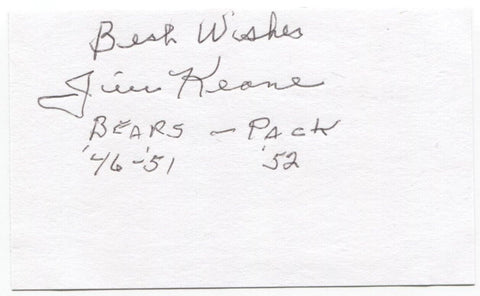 Best Wishes
Jim Keane
BEARS - PACK
'46-'51 '52